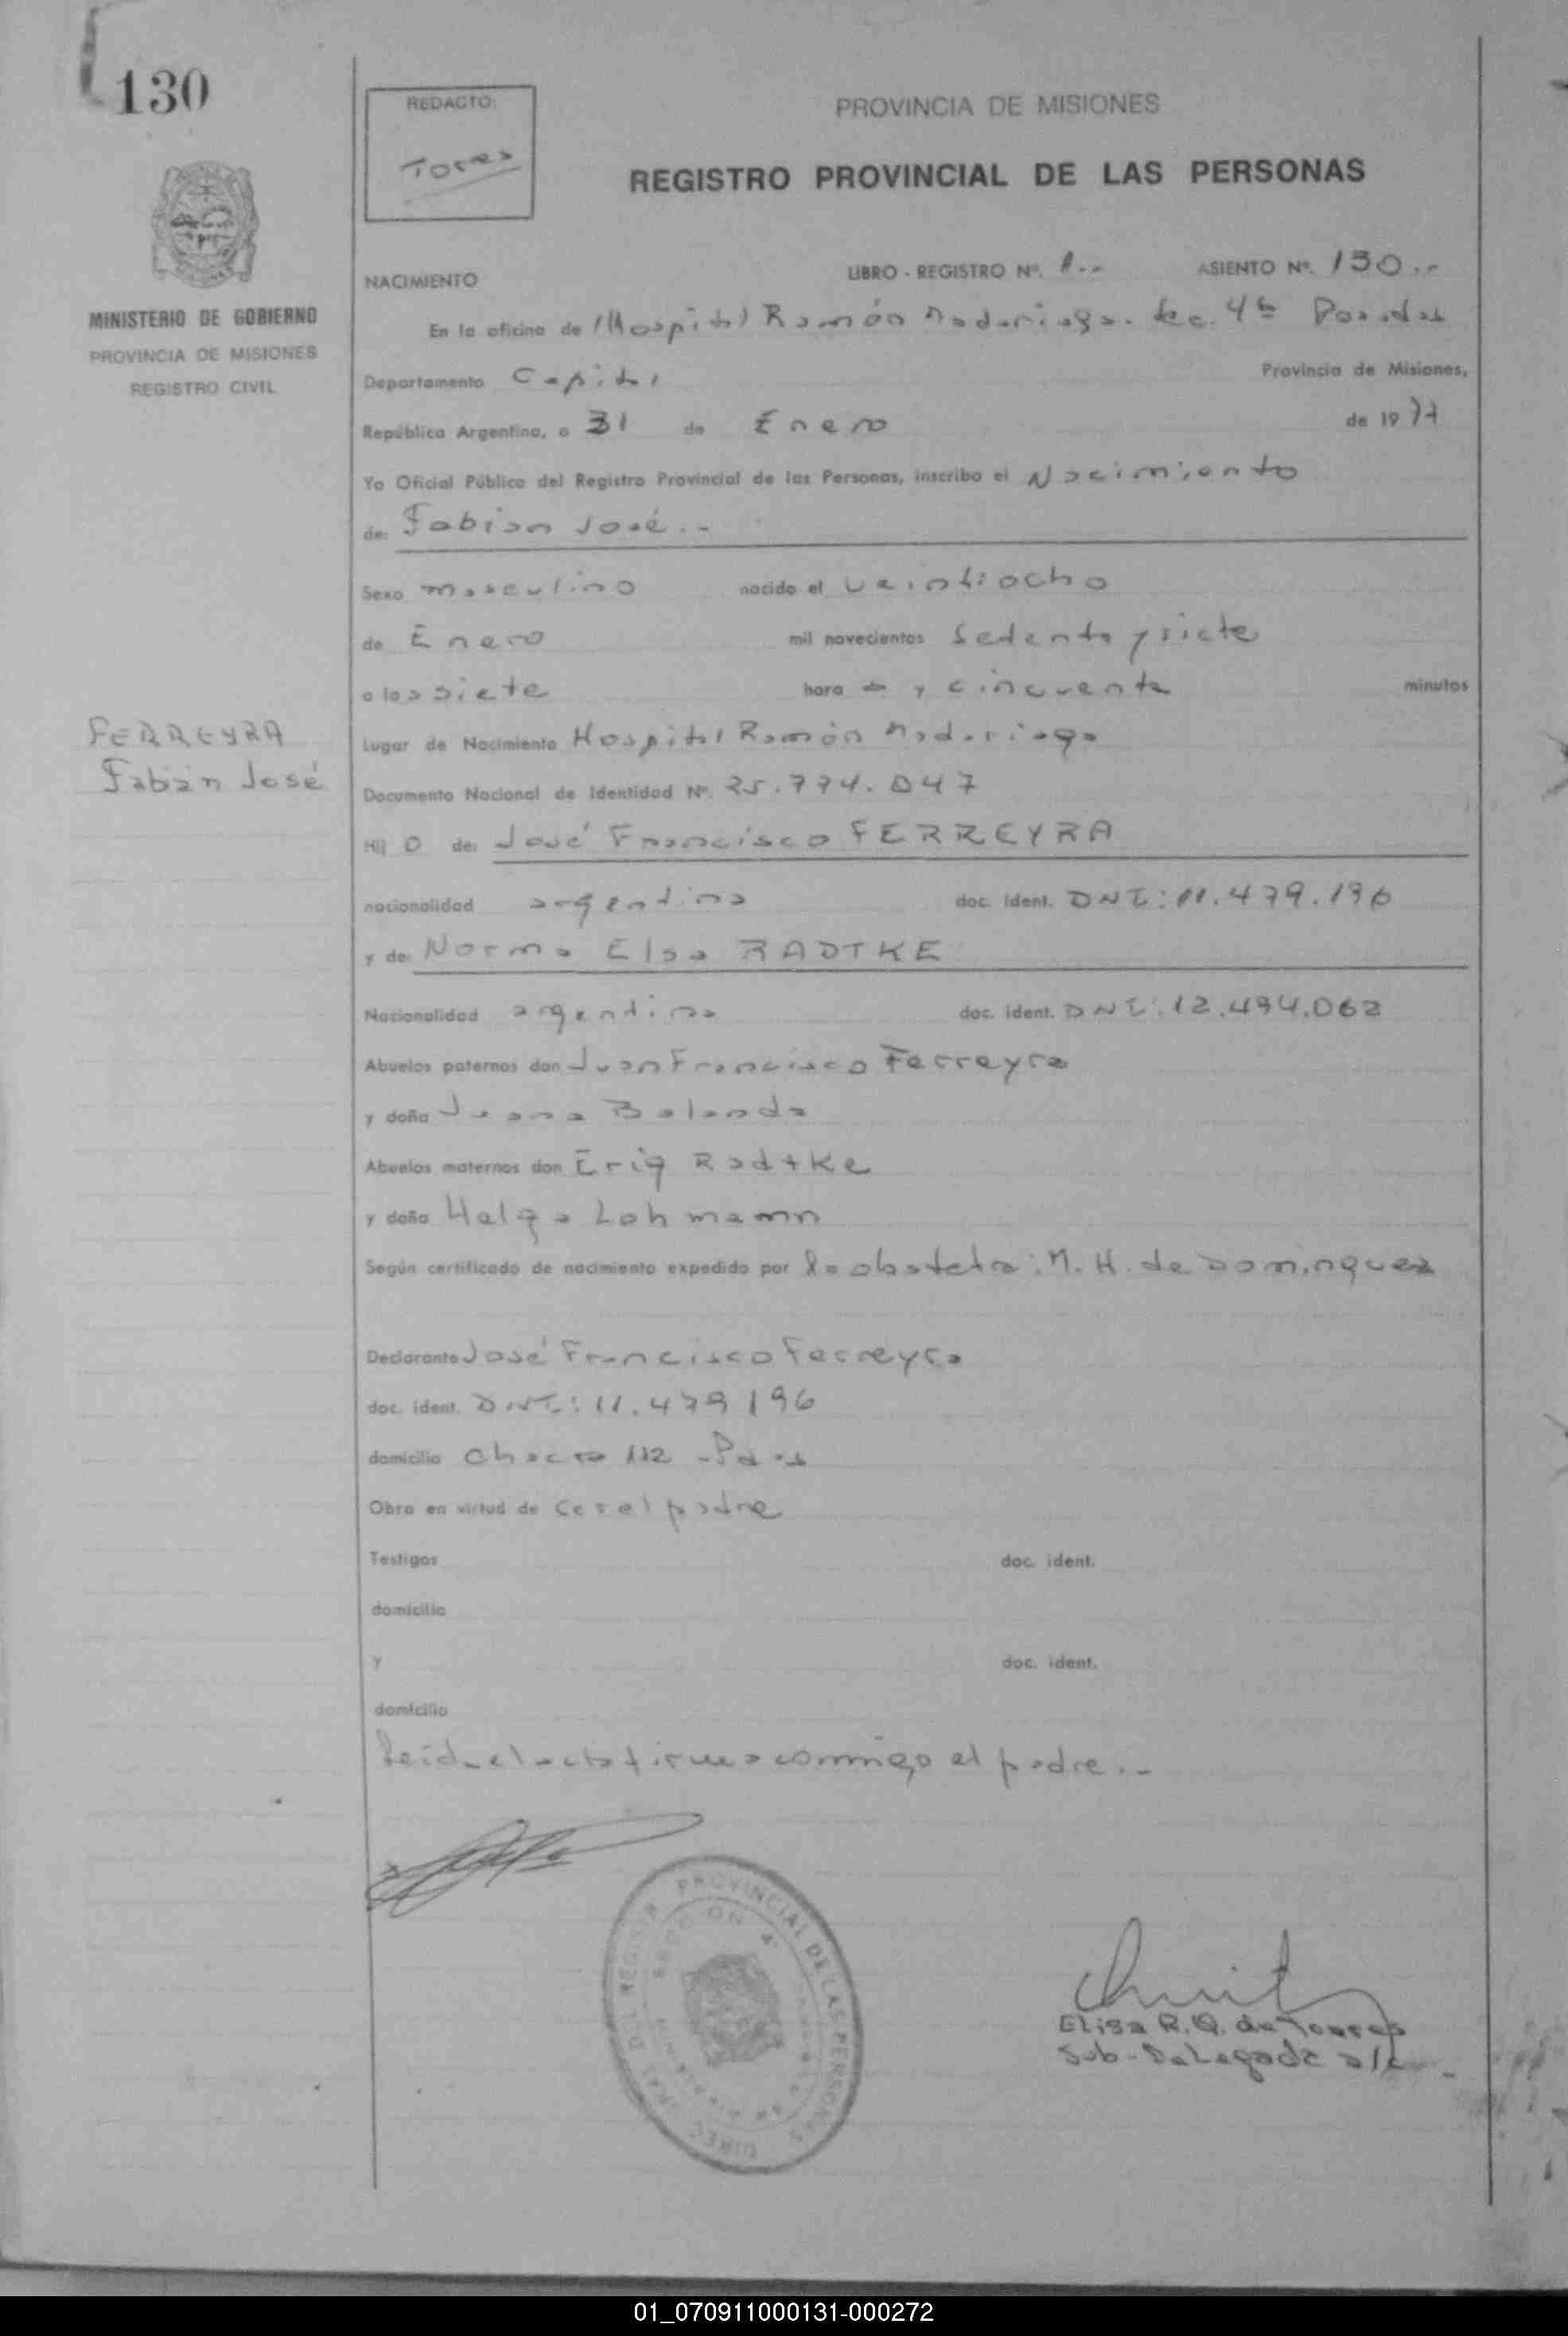 130
REDACTO:
Torres
PROVINCIA DE MISIONES
REGISTRO PROVINCIAL DE LAS PERSONAS
MINISTERIO DE GOBIERNO
PROVINCIA DE MISIONES
REGISTRO CIVIL
NACIMIENTO LIBRO - REGISTRO Nº. 1.- ASIENTO Nº. 130.-
En la oficina de Hospital Ramón Madariaga. Sec. 4ta Posadas
Departamento Capital Provincia de Misiones,
República Argentina, a 31 de Enero de 1977
Yo Oficial Público del Registro Provincial de las Personas, inscribo el Nacimiento
de: Fabian José.-
Sexo masculino nacido el veintiocho
de Enero mil novecientos setenta y siete
a las siete hora s y cincuenta minutos
FERREYRA
Fabián José
Lugar de Nacimiento Hospital Ramón Madariaga
Documento Nacional de Identidad Nº. 25.774.047
Hij o de: José Francisco FERREYRA
nacionalidad argentina doc. ident. DNI: 11.479.196
y de: Norma Elsa RADTKE
Nacionalidad argentina doc. ident. DNI: 12.494.062
Abuelos paternos don Juan Francisco Ferreyra
y doña Juana Balanda
Abuelos maternos don Erig Radtke
y doña Helga Lohmamn
Según certificado de nacimiento expedido por la obstetra: M. H. de Dominguez
Declarante José Francisco Ferreyra
doc. ident. DNI: 11.479196
domicilio Chacra 112 - Pdas
Obra en virtud de ser el padre
Testigos doc. ident.
domicilio
y doc. ident.
domicilio
Leida el acta firma conmigo el padre.-
PROVINCIAL DE LAS PERSONAS
SECCION 4ª
Elisa R. Q. de Torres
Sub-Delegada a/c
01_070911000131-000272